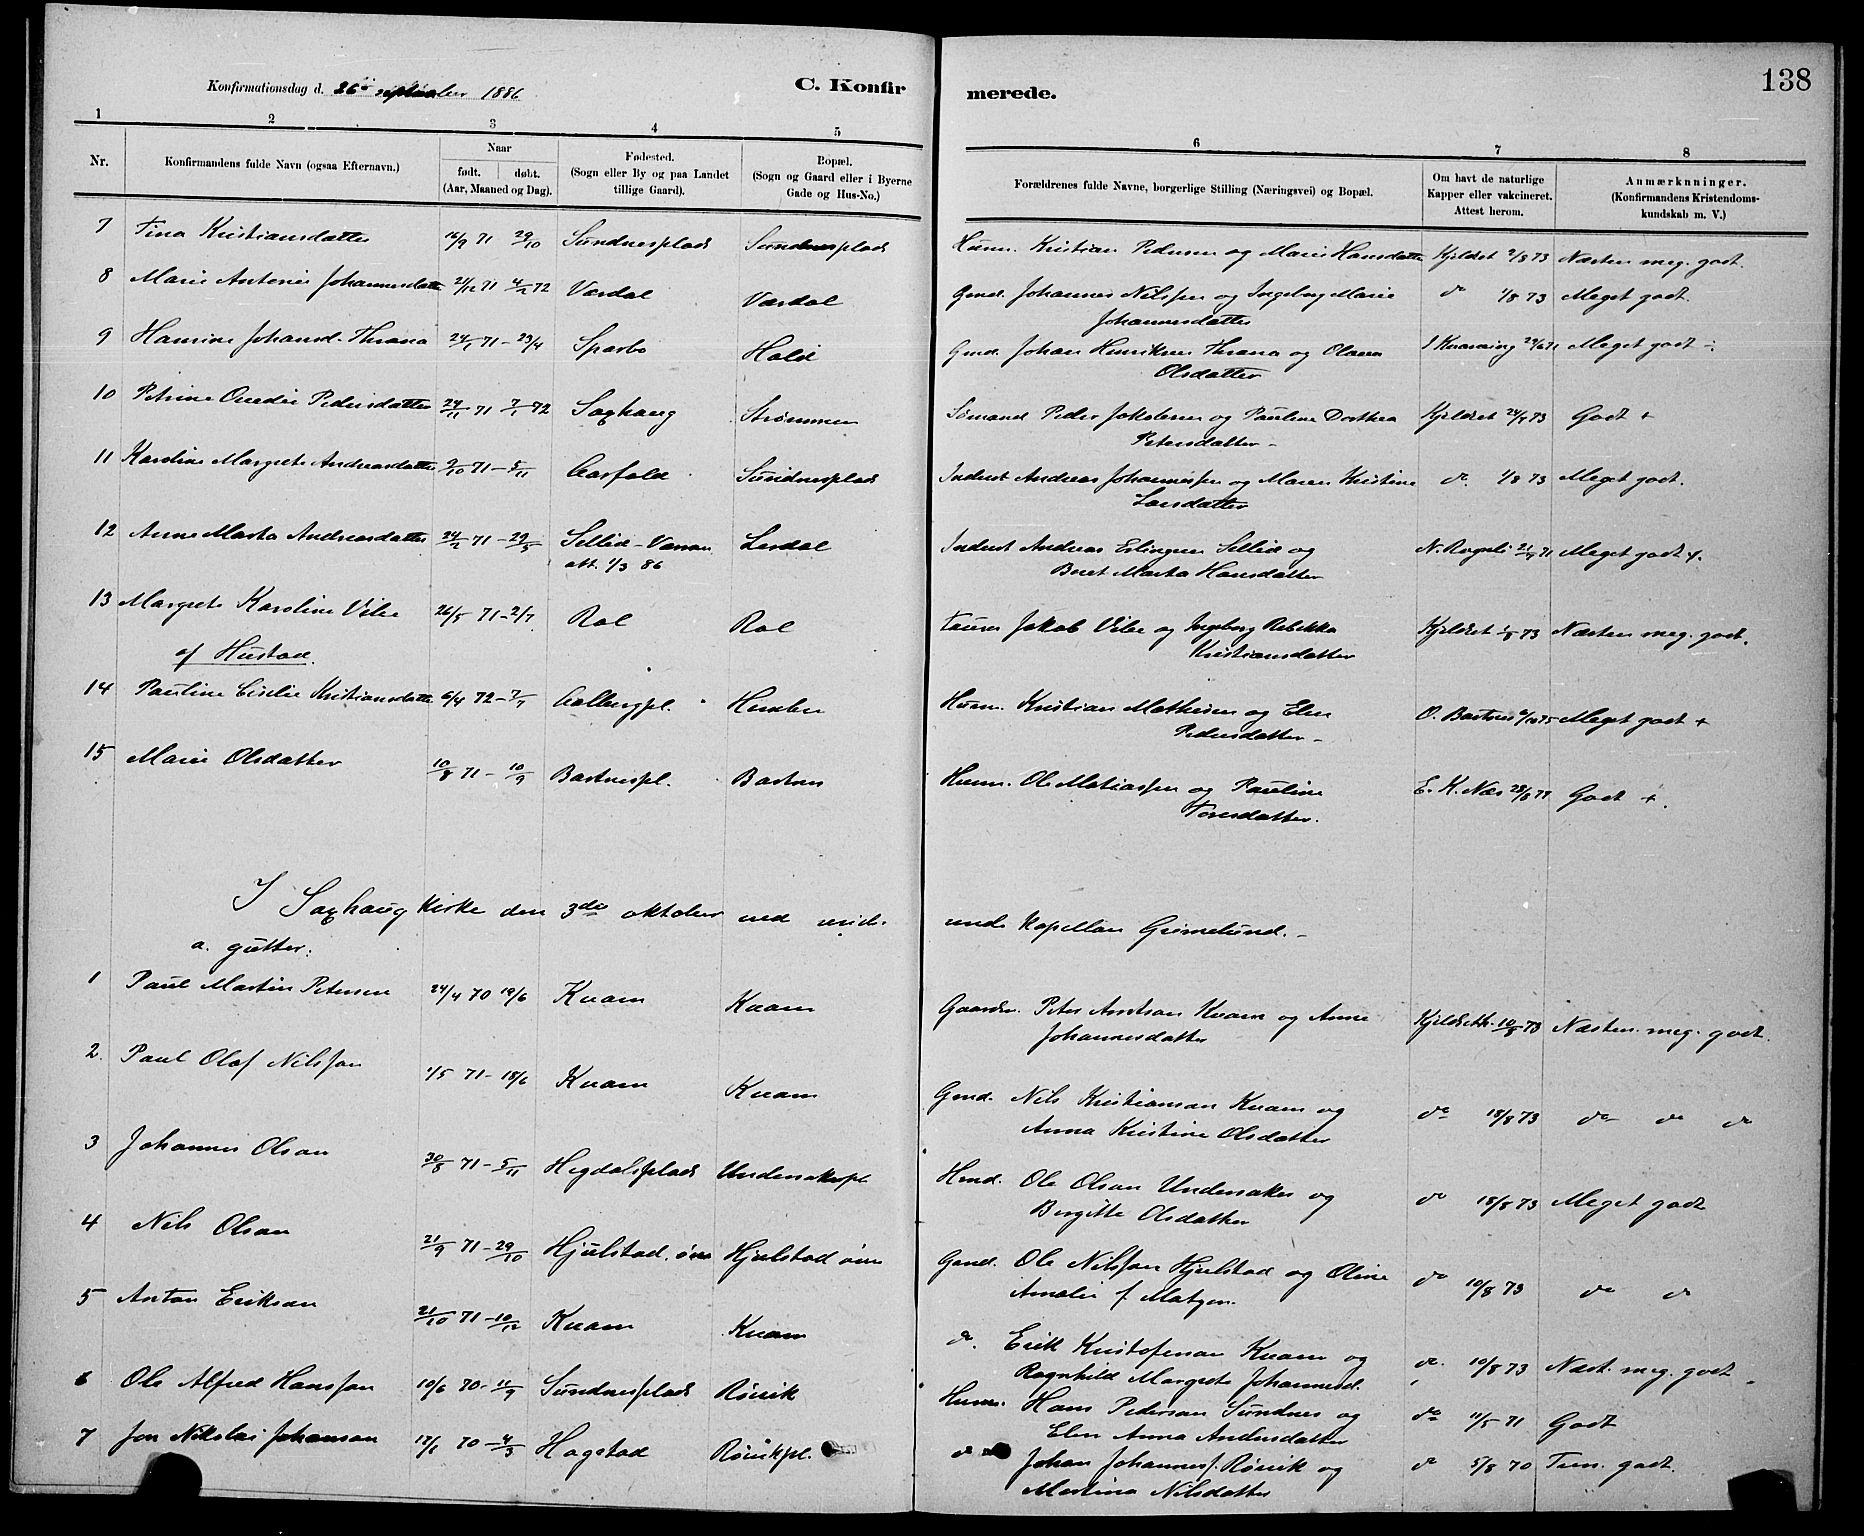 138
Konfirmationsdag d. 26de september 1886
C. Konfir merede.
1 2 3 4 5 6 7 8
Nr. Konfirmandens fulde Navn (ogsaa Efternavn.) Naar født. døbt. (Aar, Maaned og Dag). Fødested. (Sogn eller By og paa Landet tillige Gaard). Bopæl. (Sogn og Gaard eller i Byerne Gade og Hus-No.) Forældrenes fulde Navne, borgerlige Stilling (Næringsvei) og Bopæl. Om havt de naturlige Kapper eller vakcineret. Attest herom. Anmærknninger. (Konfirmandens Kristendoms- kundskab m. V.)
7 Tina Kristiansdatter 16/9 71 29/10 Sundnesplads Sundnesplads Husm. Kristian Pedersen og Maria Hansdatter Kjeldset 2/8 73 Næsten meg. godt.
8 Marie Antonie Johannesdatter 21/12 71 4/2 72 Værdal Værdal Gmd. Johannes Nilssen og Ingeborg Marie
Johannesdatter do 1/8 73 Meget godt.
9 Hansine Johansd. Thrana 24/1 71 - 23/4 Sparbo Hald Gmd. Johan Henriksen Thrana og Olava
Olsdatter Meget godt ÷
10 Petrine Pedersdatter 24/11 71 7/1 72 Saxhaug Strømmen Sömand Peder Jakobsen og Pauline Dorthea
Petersdatter - Kjeldset 73 Godt +
11 Karoline Margrete Andreasdatter 2/10 71 - 5/11 Aasfald Sundnesplads Inderst Andreas Johannessen og Maren Kristine
Larsdatter do. 1/8 73 Meget godt.
12 Anne Marta Andreasdatter 24/2 71 - 29/5 Sellid - Værran Lerdal Inderst Andreas Erlingsen Sellid og
att. 1/3 86 Beret Marta Hansdatter 71 Meget godt
13 Margrete Karoline Vibe 26/5 71 - 2/7 Rol Rol Jakob Vibe og Ingeborg Rebekka
af Hustad. Kristiansdatter Kjeldset 73 Næsten meg. godt.
14 Pauline Cecilie Kristiansdatter 6/4 72 - 7/7 Aalbergpl. Husm. Kristian Mathisen og Elen
Pedersdatter - O. Bartnes 75 Meget godt +
15 Marie Olsdatter 10/8 71 - 10/9 Bartnespl. Bartnes Husm. Ole Matiassen og Pauline
Toresdatter. E. K. Næs 28/8 Godt +.
I Saxhaug kirke den 3de oktober ved resid-
ende kapellan Grimelund. -
a. gutter:
1 Paul Martin Petersen 24/4 70 19/6 Kvam Kvam Gaardm. Peter Kvam og Anne
Johannesdatter Kjeldseth. 10/8 73 Næsten meg. godt.
2. Paul Olaf Nilssen 1/5 71 - 18/6 Kvam Kvam Gmd. Nils Kristiansan Kvam og
Anna Kristine Olsdatter do 18/8 73 do do do
3 Johannes Olsan 30/8 71 - 5/11 Hegdalsplads Undersakerpl. Hmd. Ole Olsan Undersaker og
Bergitte Olsdatter do 18/8 73 Meget godt
4 Nils Olsan 21/9 71 - 29/10 Hjulstad øvre Hjulstad øvre Gmd. Ole Nilssan Hjulstad og Oline
Amalie f. Matzen. do 10/8 73 do do
5 Anton Eriksan 21/10 71 - 10/12 Kvam Kvam do. Erik Kristofersan Kvam og
Ragnhild Margrete Johannesd. do. 10/8 73 Næst. meg. godt
6 Ole Alfred Hanssan 10/6 70 - 11/9 Sundnesplads Röivik Husm. Hans Pedersan Sundnes og
Elen Anna Andersdatter do 11/5 71 Godt
7 Jon Nikolai Johansan 17/1 70 - 4/3 Hagstad Röivikpl. do Johan Johanness. Röivik og
Martina Nilsdatter do 5/8 70 Tem. godt.